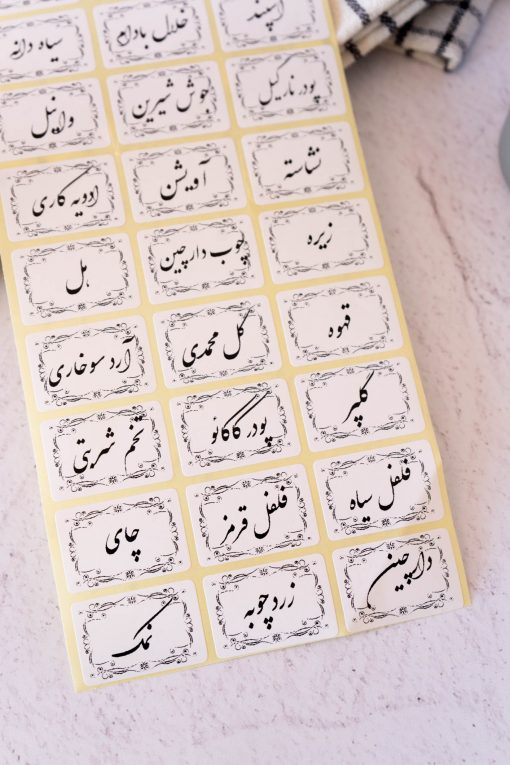 اسپند
خلال بادام
سیاه دانه
پودر نارگیل
جوش شیرین
وانیل
نشاسته
آویشن
ادویه کاری
زیره
چوب دارچین
هل
قهوه
گل محمدی
آرد سوخاری
گلپر
پودر کاکائو
تخم شربتی
فلفل سیاه
فلفل قرمز
چای
دارچین
زردچوبه
نمک